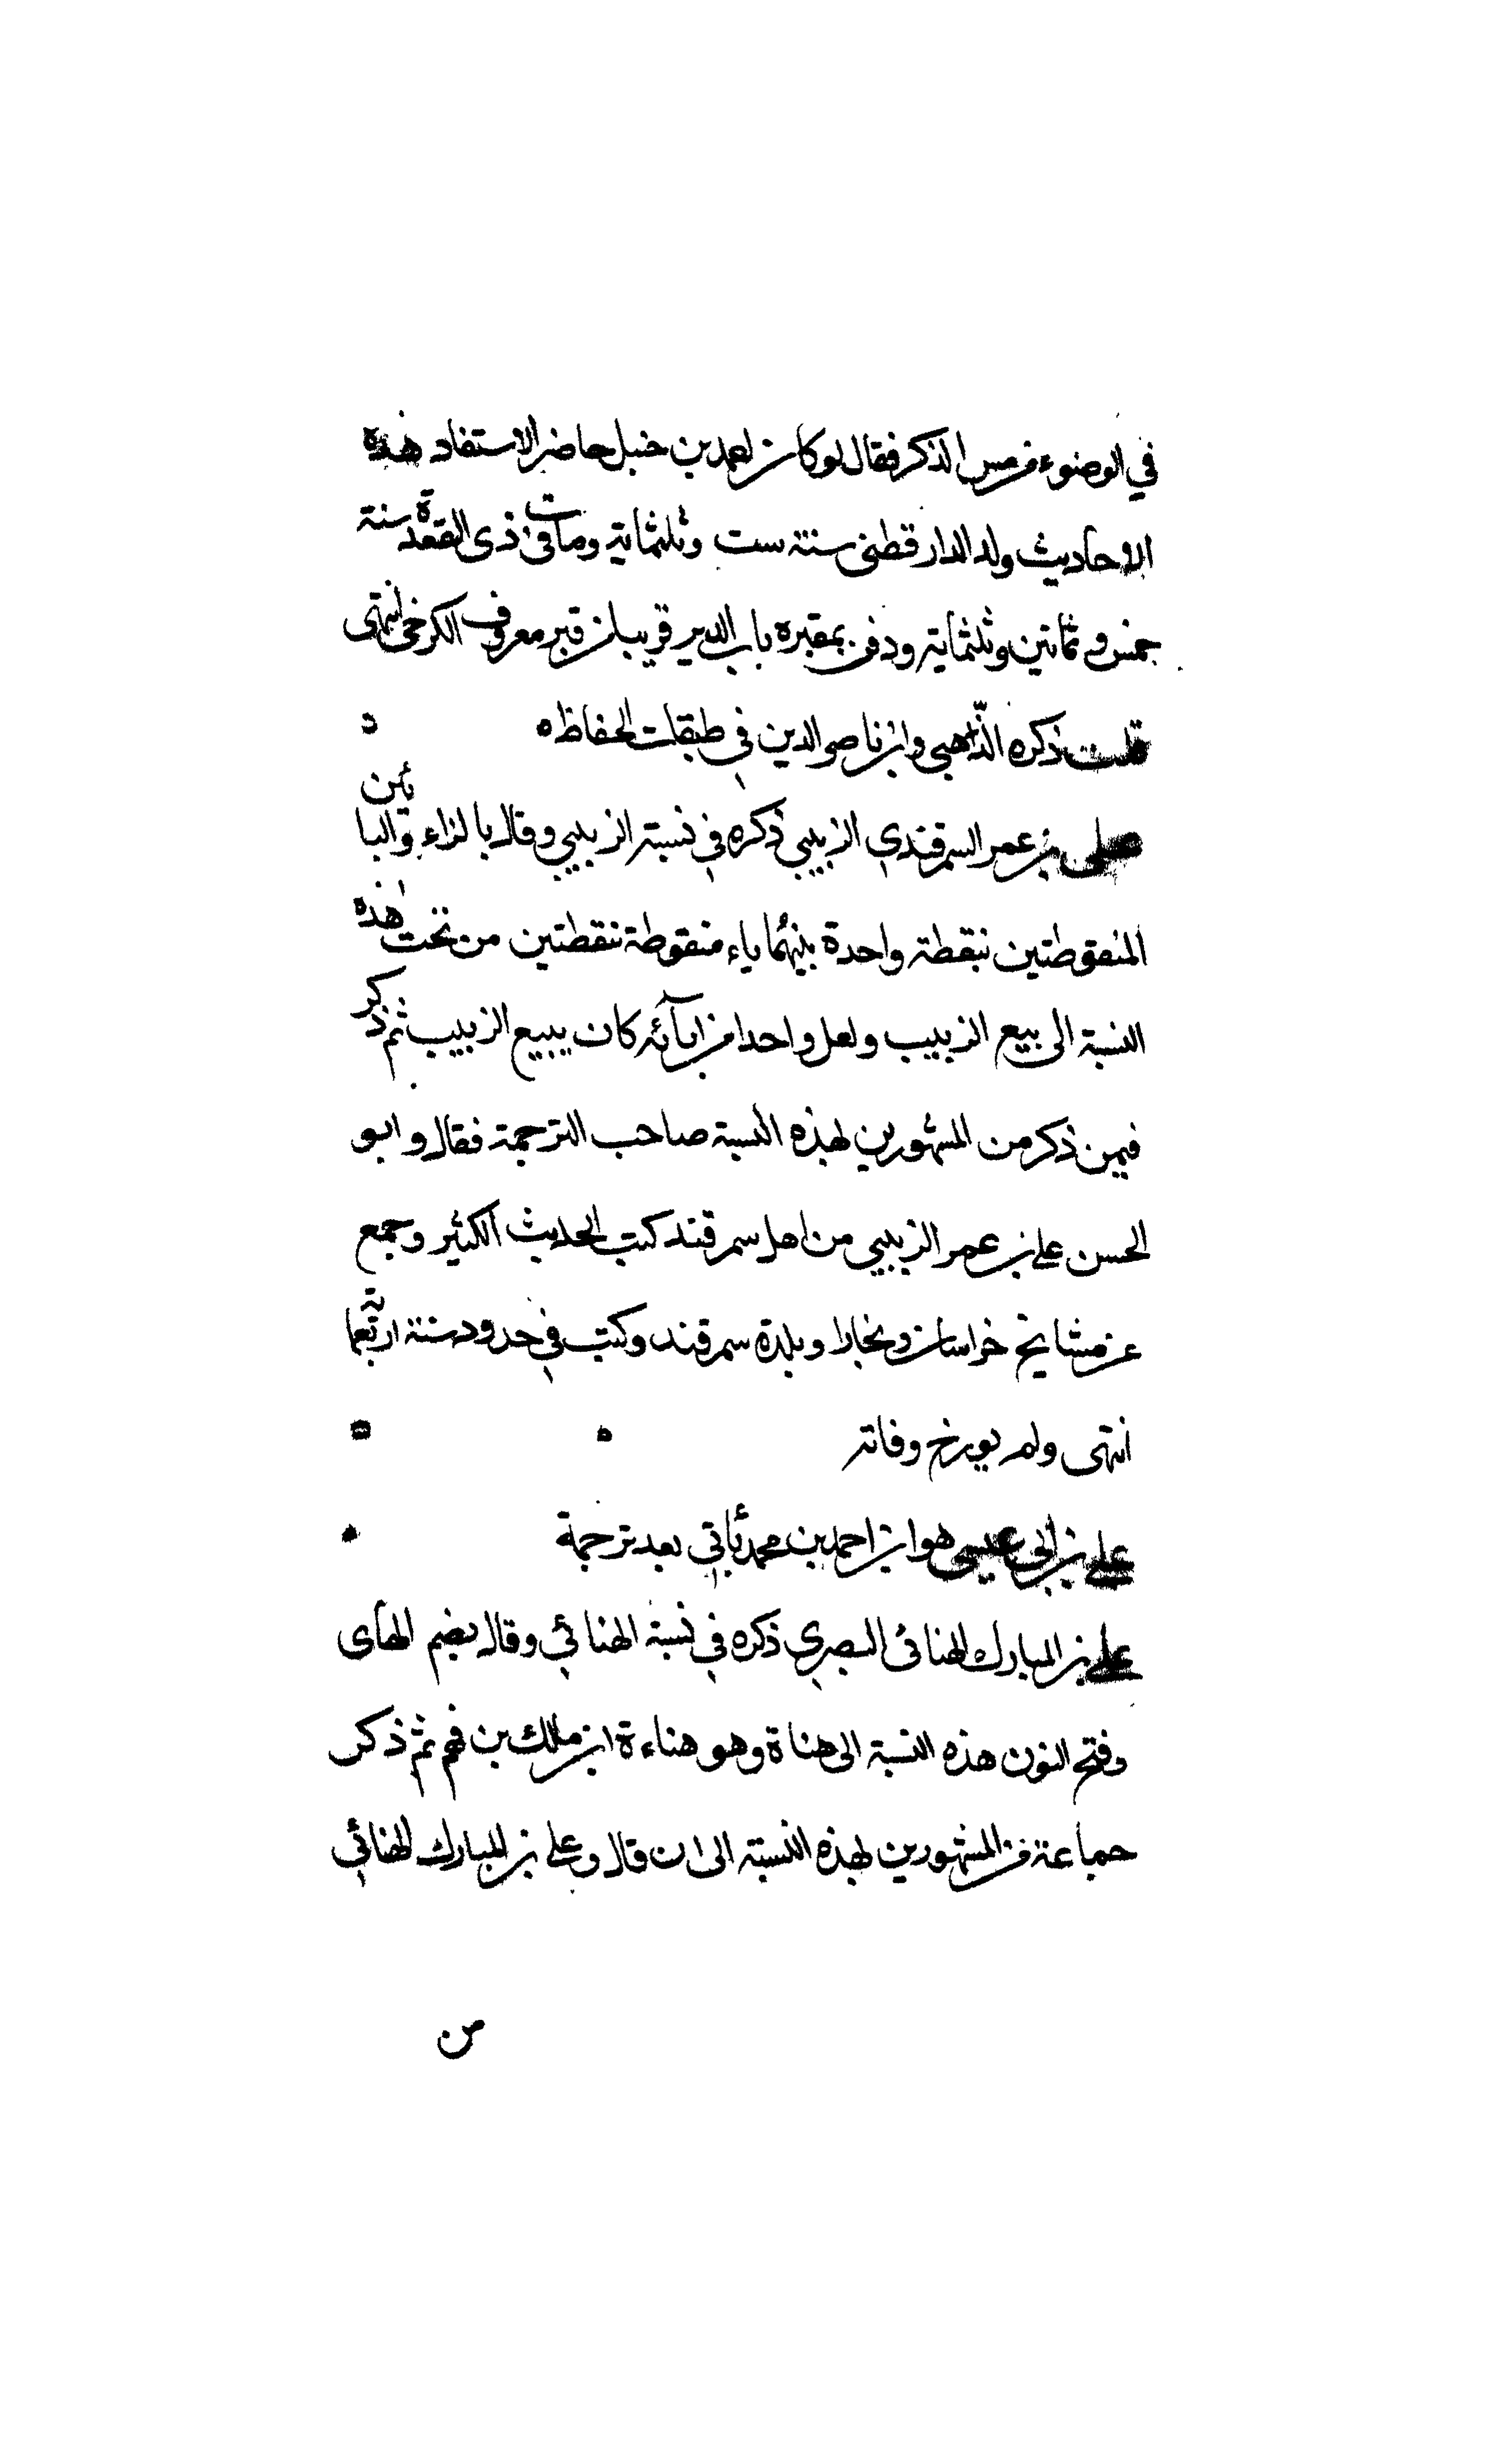 في الوضوء من مس الذكر فقال لو كان احمد بن حنبل حاضر الاستفاد هذه
الاحاديث ولد الدارقطني سنة ست وثلثماية ومات في ذي القعدة سنة
خمس وثمانين وثلثماية ودفن بمقبرة باب الدير قريبا من قبر معروف الكرخي انتهى
قلت ذكره الذهبي وابن ناصر الدين في طبقات الحفاظ ه
علي بن عمر السمرقندي الزبيبي ذكره في نسبة الزبيبي وقال بالزاء والبائين
المنقوطتين بنقطة واحدة بينهما ياء منقوطة بنقطتين من تحت هذه
النسبة الى بيع الزبيب ولعل واحدا من ابآئه كان يبيع الزبيب ثم ذكر
فيمن ذكر من المشهورين لهذه النسبة صاحب الترجمة فقال وابو
الحسن علي بن عمر الزبيبي من اهل سمرقند كتب الحديث الكثير وجمع
عن مشايخ خراسان وبخارا وبلدة سمرقند وكتب في حدود سنة اربعماية
انتهى ولم يورخ وفاته
علي بن ابي عيسى هو ابن احمد بن محمد ياتي بعد ترجمة
علي بن المبارك الهنائى البصري ذكره في نسبة الهنائي وقال بضم الهاى
وفتح النون هذه النسبة الى هناة وهو هناءة ابن ملك بن فهم ثم ذكر
جماعة من المشهورين لهذه النسبة الى ان قال وعلي بن المبارك الهنائي
من